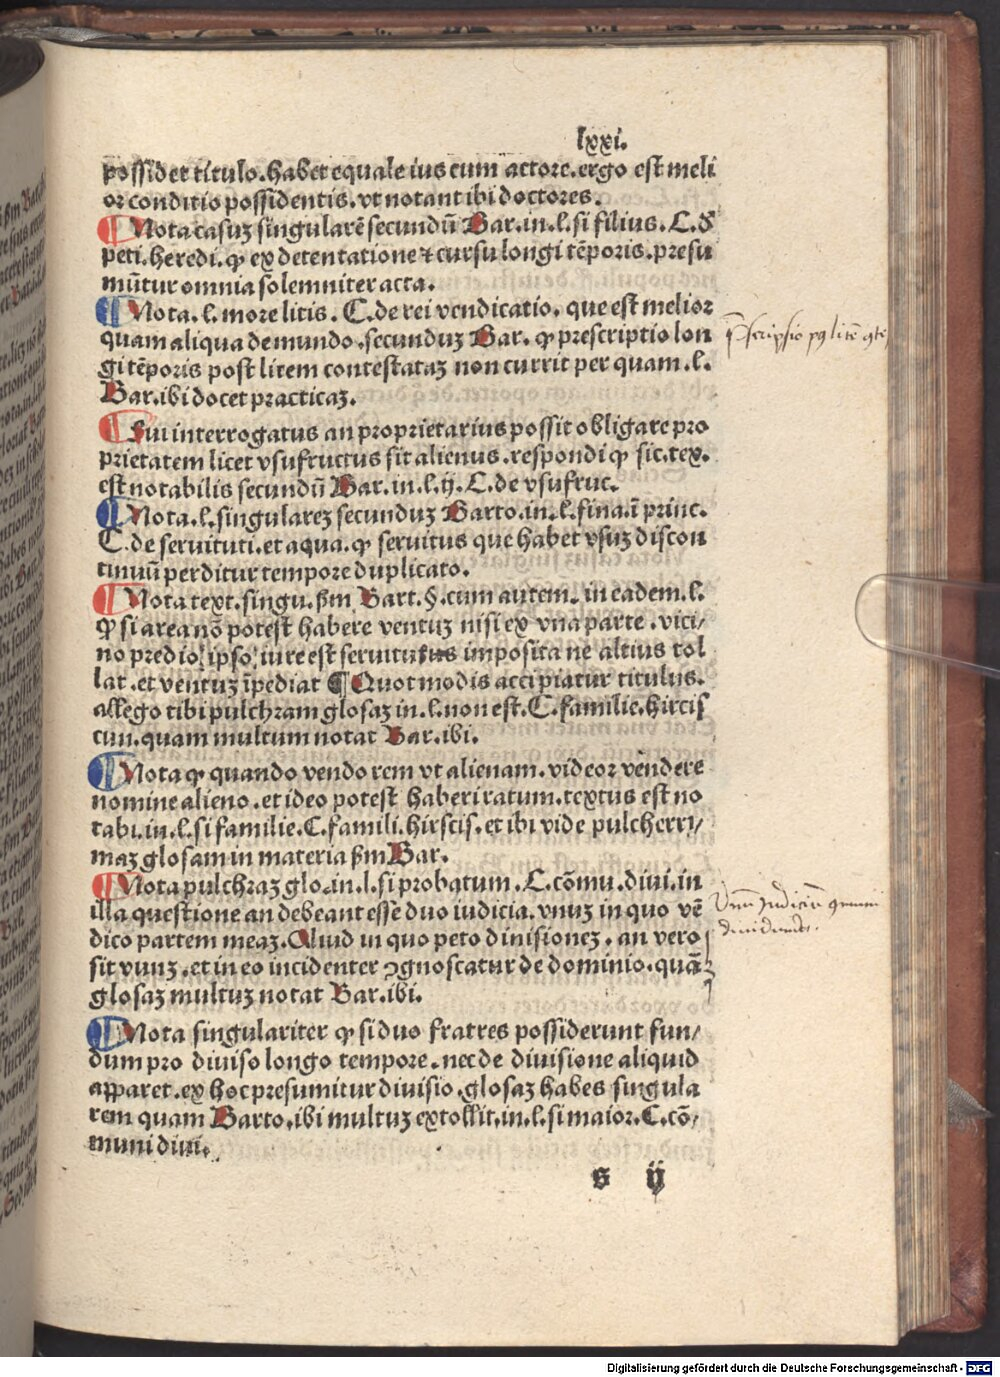 lxxi.
possidet titulo.habet equale ius cum actore.ergo est meli
or conditio possidentis.vt notant ibi doctores.
¶ Nota casuʒ singularē secundū Bar.in.l.si filius.C.ð
peti.heredi.ꝙ ex detentatione ⁊ cursu longi tēporis.presu
mūtur omnia solemniter acta.
¶ Nota.l.more litis.C.de rei vendicatio.que est melior
quam aliqua de mundo.secunduʒ Bar.ꝙ prescriptio lon
gi tēporis post litem contestataʒ non currit per quam.l.
Bar.ibi docet practicaʒ.
¶ Fui interrogatus an proprietarius possit obligare pro
prietatem licet vsufructus sit alienus.respondi ꝙ sic.tex.
est notabilis secundū Bar.in.l.ij.C.de vsufruc.
¶ Nota.l.singulareʒ secunduʒ Barto.in.l.fina.ī princ.
C.de seruituti.et aqua.ꝙ seruitus que habet vsuʒ discon
tinuū perditur tempore duplicato.
¶ Nota text.singu.ẞm Bart.§.cum autem.in eadem.l.
ꝙ si area nō potest habere ventuʒ nisi ex vna parte.vici/
no predio ipso iure est seruitutus imposita ne altius tol
lat.et ventuʒ īpediat ¶ Quot modis accipiatur titulus.
allego tibi pulchram glosaʒ in.l.non est.C.familie.hircis
cun.quam multum notat Bar.ibi.
¶ Nota ꝙ quando vendo rem vt alienam.videor vendere
nomine alieno.et ideo potest haberi ratum.textus est no
tabi.in.l.si familie.C.famili.hirscis.et ibi vide pulcherri/
maʒ glosam in materia ẞm Bar.
¶ Nota pulchraʒ glo.in.l.si probatum.C.cōmu.diui.in
illa questione an debeant esse duo iudicia.vnuʒ in quo vē
dico partem meaʒ.Aliud in quo peto diuisioneʒ.an vero
sit vunʒ.et in eo incidenter ꝯgnoscatur de dominio.quā
glosaʒ multuʒ notat Bar.ibi.
¶ Nota singulariter ꝙ si duo fratres possiderunt fun/
dum pro diuiso longo tempore.nec de diuisione aliquid
apparet.ex hoc presumitur diuisio.glosaʒ habes singula
rem quam Barto.ibi multuʒ extollit.in.l.si maior.C.cō/
muni diui.
s ij
Digitalisierung gefördert durch die Deutsche Forschungsgemeinschaft - DFG